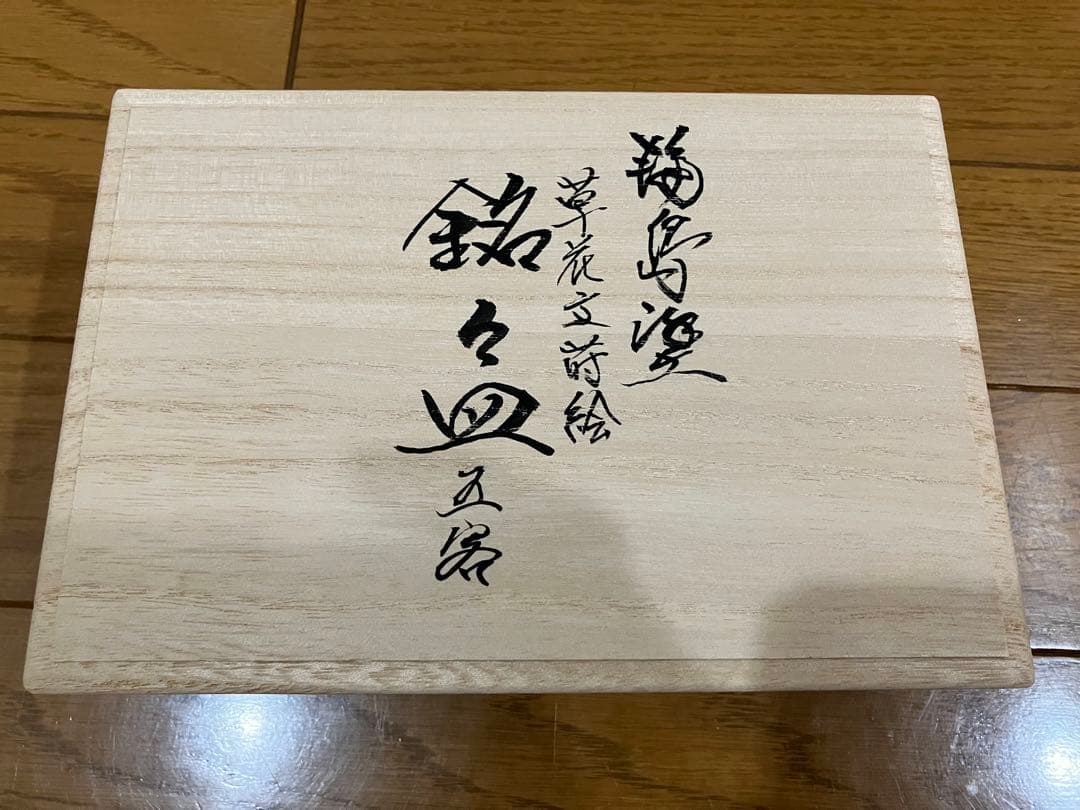 輪島塗
草花文蒔絵
銘々皿 五客